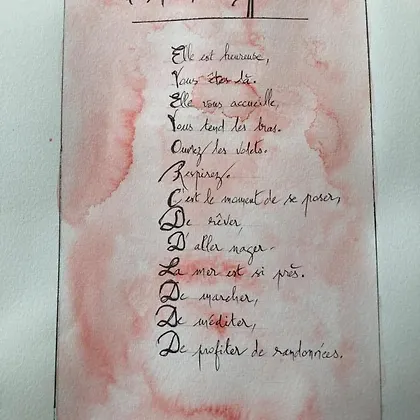 Elle est heureuse,
Vous êtes là.
Elle vous accueille,
Vous tend les bras.
Ouvrez les volets.
Respirez.
C'est le moment de se poser,
De rêver,
D'aller nager.
La mer est si près.
De marcher,
De méditer,
De profiter de randonnées.